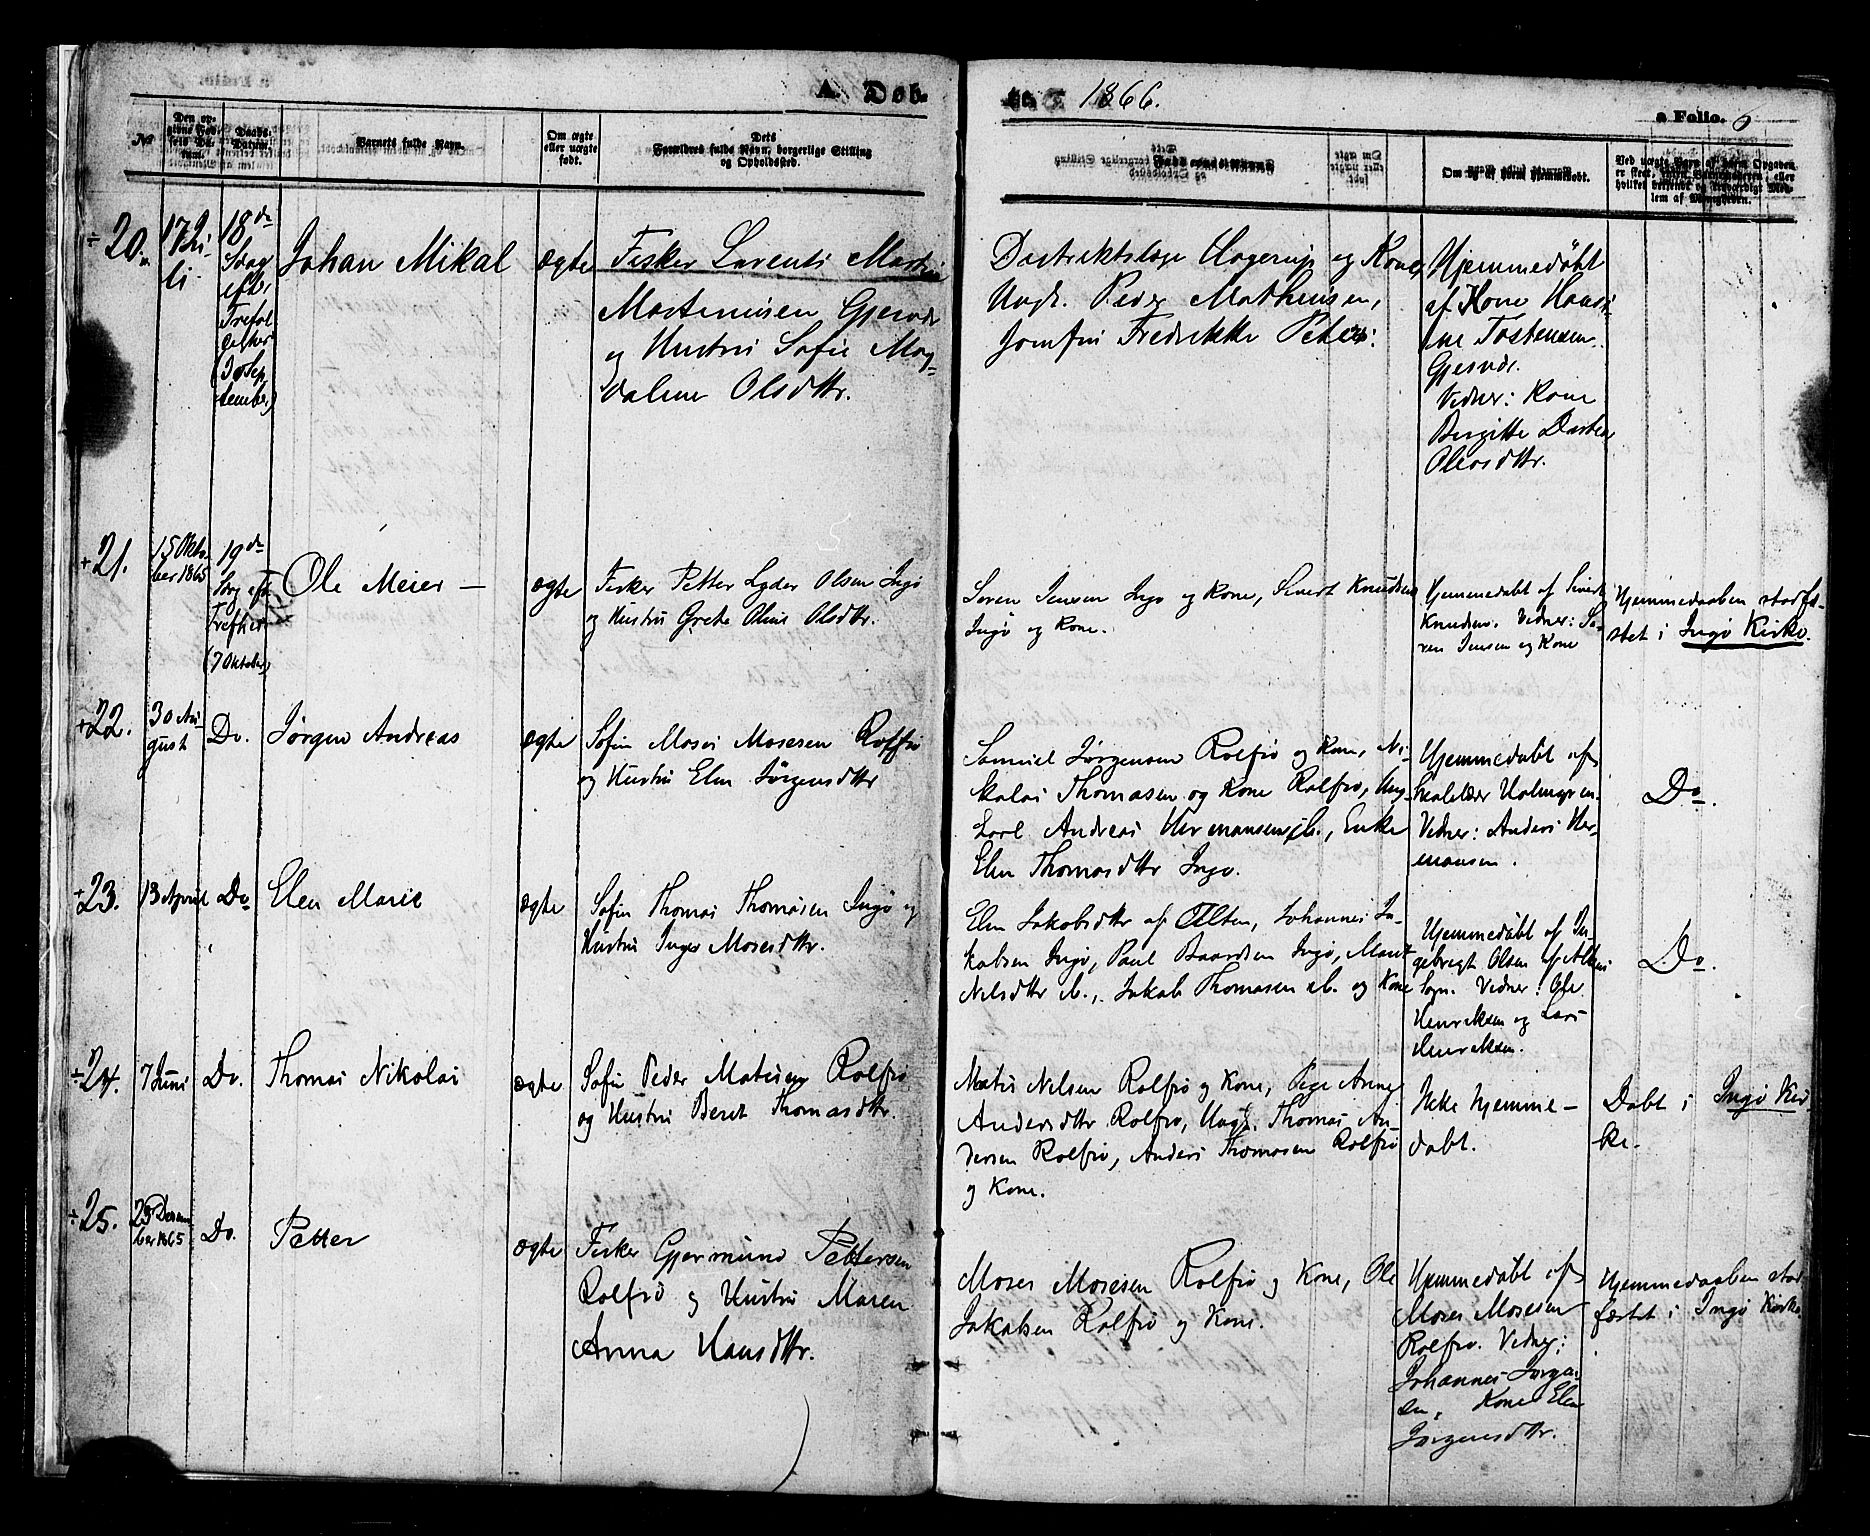 A. Døb-
te 1866.
a Folio. 6
No
Den op-
givne Fød-
sels Da-
tum.
Daabs-
Datum.
Barnets fulde Navn.
Om ægte
eller uægte
født.
Dets
Forældres fulde Navn, borgerlige Stilling
og Opholdssted.
Om og af hvem hjemmedøbt.
÷ 20.
17 Ju-
li
18de
Sdag
efter
(30 Sep-
tember)
Johan Mikal
ægte
Fisker Lorents Martin
Mortensen Gjesvær
og Hustru Sofie Mag-
dalene Olsdttr.
Distriktslæge Hagerup og Kone,
Ungk. Peder Mathiusen,
Jomfru Fredrikke Peters:
Hjemmedøbt
af Kone Hansi-
ne Tostensen
Gjesvær.
Vidner: Kone
Birgitte Dorthea
Olevsdttr.
+ 21.
15 Okto-
ber 1865
19de
Sdag eft.
Trefher
(7 Oktober)
Ole Meier —
ægte
Fisker Petter Lyder Olsen Ingø
og Hustru Grete Oline Olsdttr.
Søren Jensen Ingø og Kone, Sivert Knudsen
Ingø og Kone.
Hjemmedøbt af Sivert
Knudsen. Vidner: Sø-
ren Jensen og Kone
Hjemmedaaben stadfæ-
stet i Ingø Kirke.
+ 22.
30 Au-
gust
Do.
Jørgen Andreas
ægte
Søfin Moses Mosesen Rolfsø
og Hustru Elen Jørgensdttr
Samuel Jørgensen Rolfsø og Kone, Ni-
kolai Thomasen og Kone Rolfsø, Ung-
karl Andreas Hermansen ib., Enke
Elen Thomasdttr Ingø.
Hjemmedøbt af
Skolelær Holmgren.
Vidner: Anders Her-
mansen.
Do.
+ 23.
13 April
Do
Elen Marie
ægte
Søfin Thomas Thomasen Ingø og
Hustru Inger Mosesdttr.
Elen Jakobsdttr af Alten, Johannes Ja-
kobsen Ingø, Paul Baardsen Ingø, Marit
Nilsdttr ib., Jakob Thomasen ib. og Kone
Hjemmedøbt af In-
gebrigt Olsen af Altens
Sogn. Vidner: Ole
Henriksen og Lars
Henriksen.
Do.
÷ 24.
7 Juni
Do.
Thomas Nikolai
ægte
Søfin Peder Matisen Rolfsø
og Hustru Beret Thomasdttr.
Matis Nilsen Rolfsø og Kone, Pige Anne
Andersdttr Rolfsø, Ungk. Thomas An-
dersen Rolfsø, Anders Thomasen Rolfsø
og Kone.
Ikke hjemme-
døbt.
Døbt i Ingø Kir-
ke.
÷ 25.
23 Decem
ber 1865
Do.
Petter
ægte
Fisker Gjermund Pettersen
Rolfsø og Hustru Maren
Anna Hansdttr.
Moses Mosesen Rolfsø og Kone, Ole
Jakobsen Rolfsø og Kone.
Hjemmedøbt af
Moses Mosesen
Rolfsø. Vidner:
Johannes Jørgen-
sen, Kone Elen
Jørgensdttr.
Hjemmedaaben stad-
fæstet i Ingø Kirke